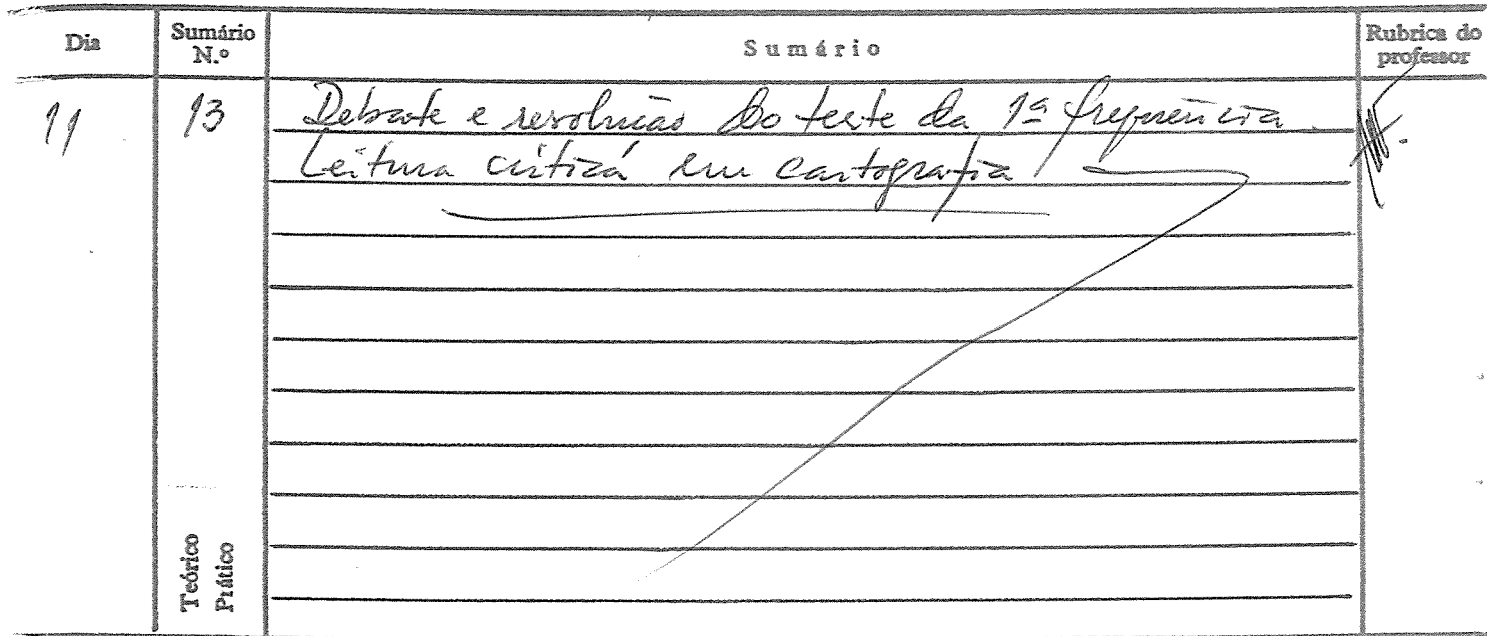 Dia
Sumário N.º
Sumário
Rubrica do professor
11
13
Debate e resolução do teste da 1ª frequência.
Leitura crítica em cartografia
Teórico
Prático